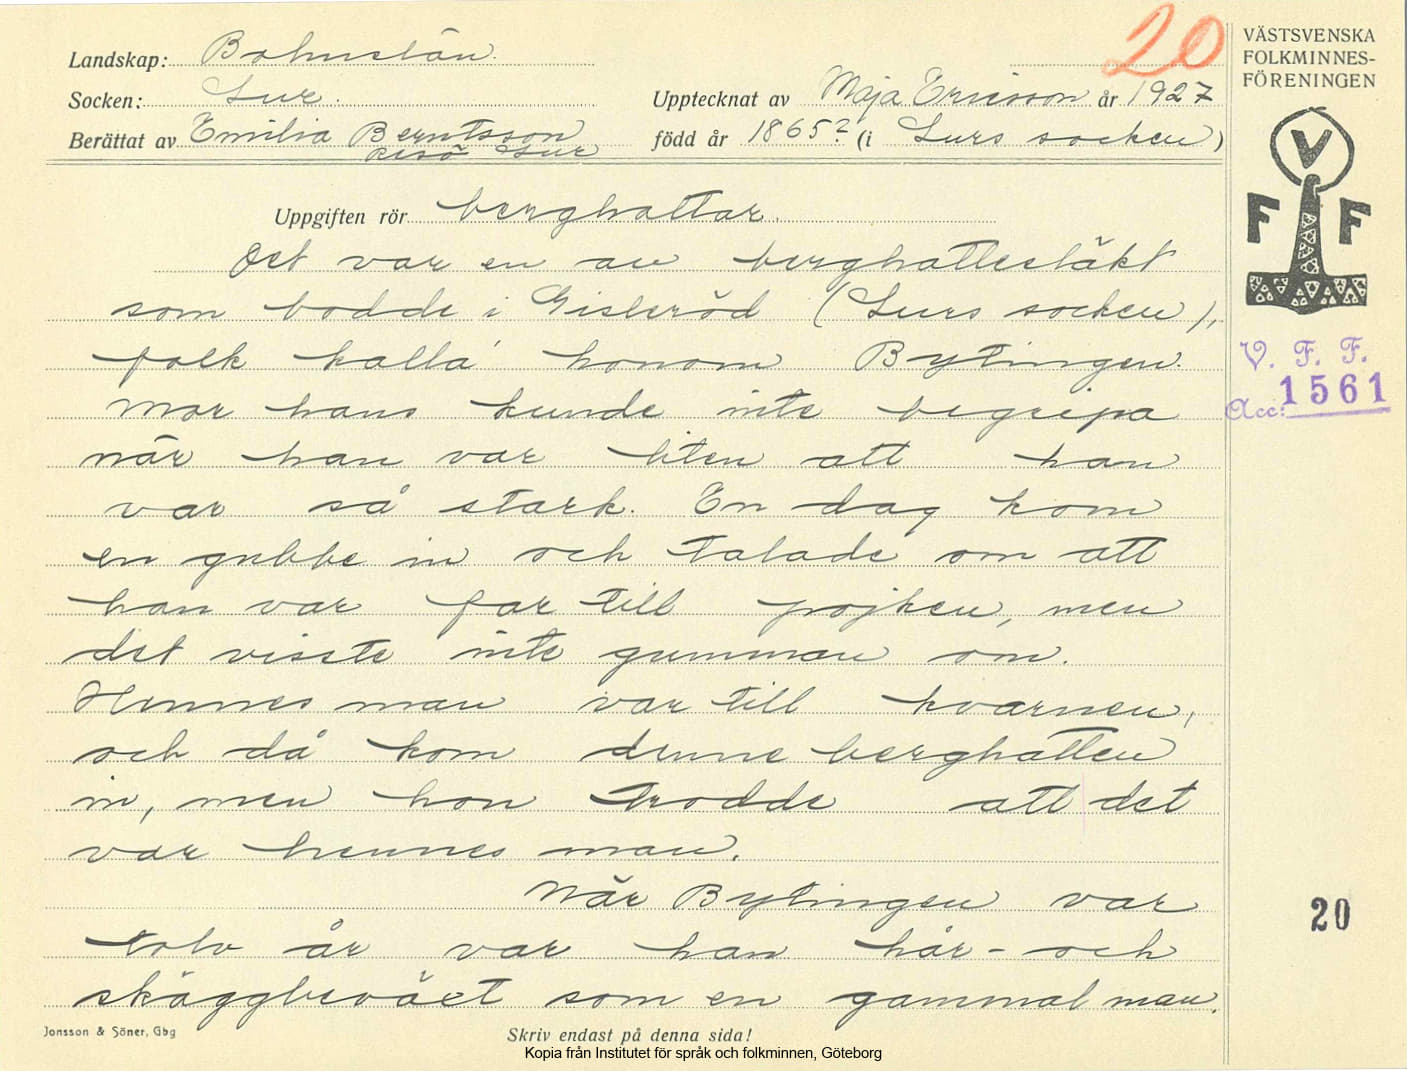 20
VÄSTSVENSKA
FOLKMINNES-
FÖRENINGEN
Landskap: Bohuslän
Socken: Lur Upptecknat av Maja Ericsson år 1927
Berättat av Emilia Berntsson född år 1865? (i Lurs socken)
Resö Lur
V
F F
Uppgiften rör berghattar.
Det var en av berghattesläkt
som bodde i Gisleröd (Lurs socken),
folk kalla' honom Bytingen.
Mor hans kunde inte begripa
när han var liten att han
var så stark. En dag kom
en gubbe in och talade om att
han var far till pojken, men
det visste inte gumman om.
Hennes man var till kvarnen,
och då kom denne berghatten
in, men hon trodde att det
var hennes man.
När Bytingen var
tolv år var han hår- och
skäggbeväxt som en gammal man.
V. F. F.
Acc: 1561
20
Jonsson & Söner, Gbg
Skriv endast på denna sida!
Kopia från Institutet för språk och folkminnen, Göteborg